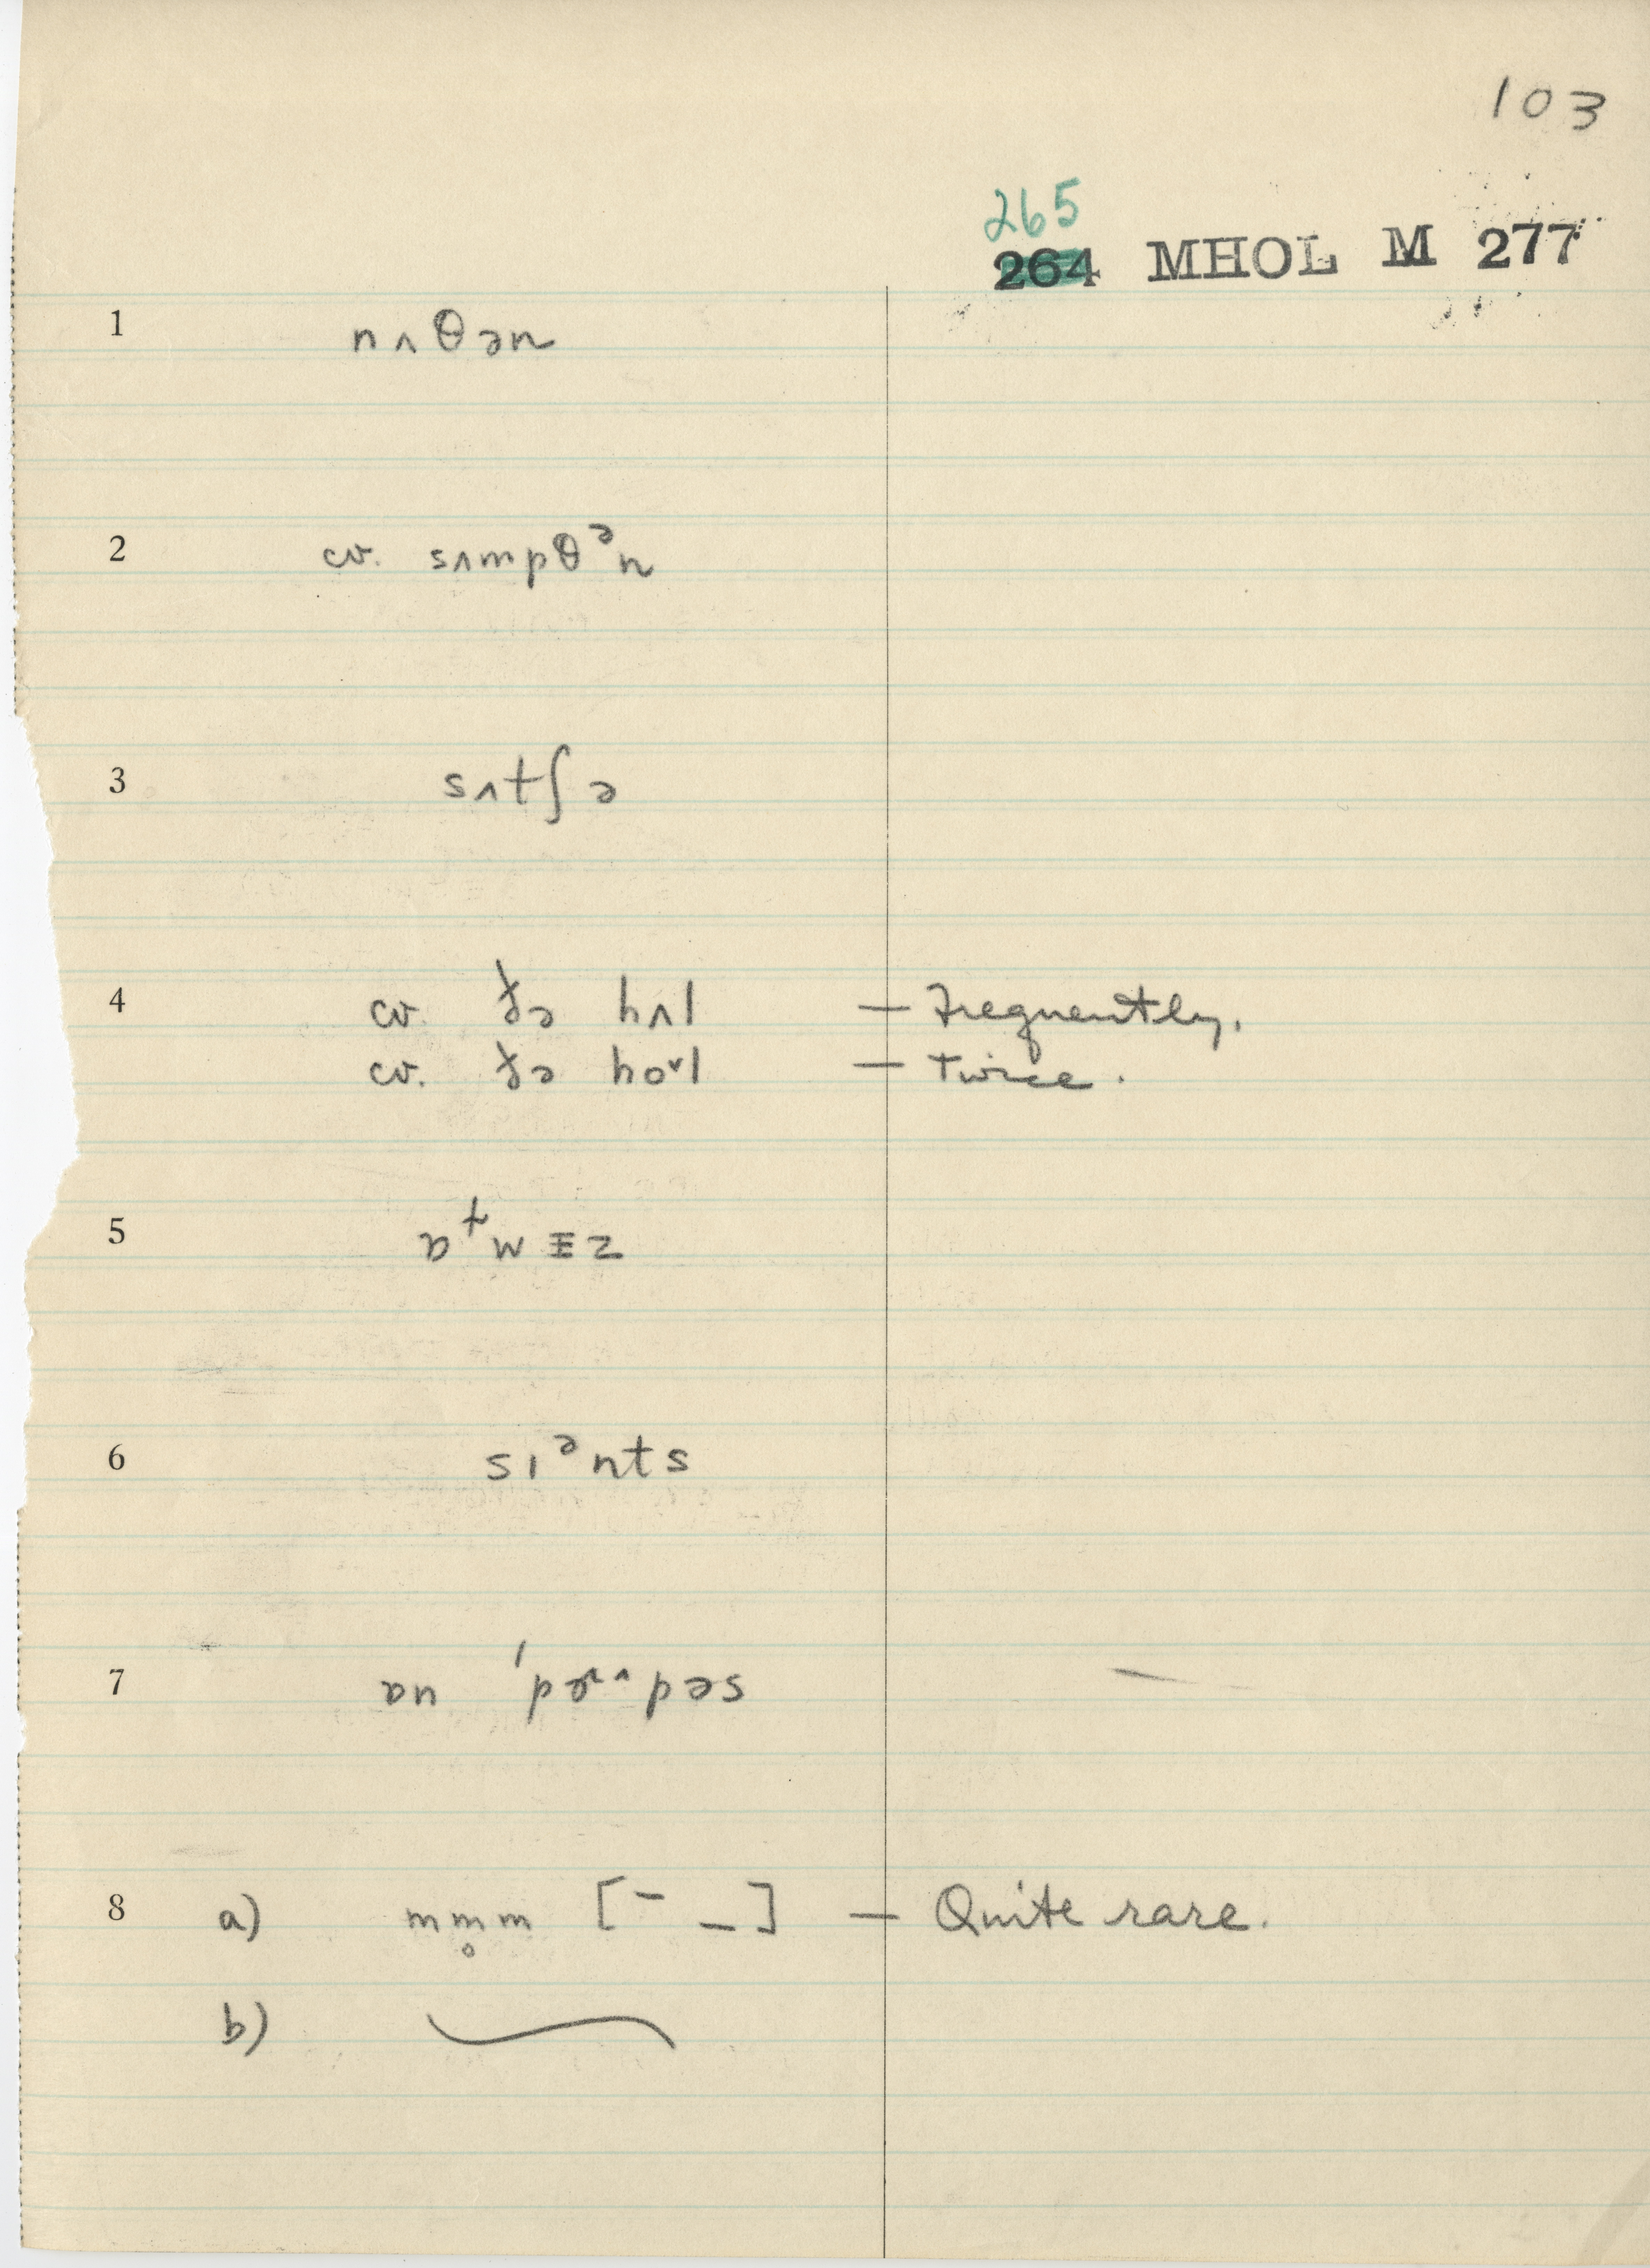 103
265
264 MHOL M 277
1 nʌθən
2 cv. sʌmpθᵊn
3 sʌtʃə
4 cv. ɟə hʌl — Frequently.
cv. ɟə ho˅l — Twice.
5 z
6 sɪᵊnts
7 ɒn pəs
8 a) mm̥m [¯ _] — Quite rare.
b)